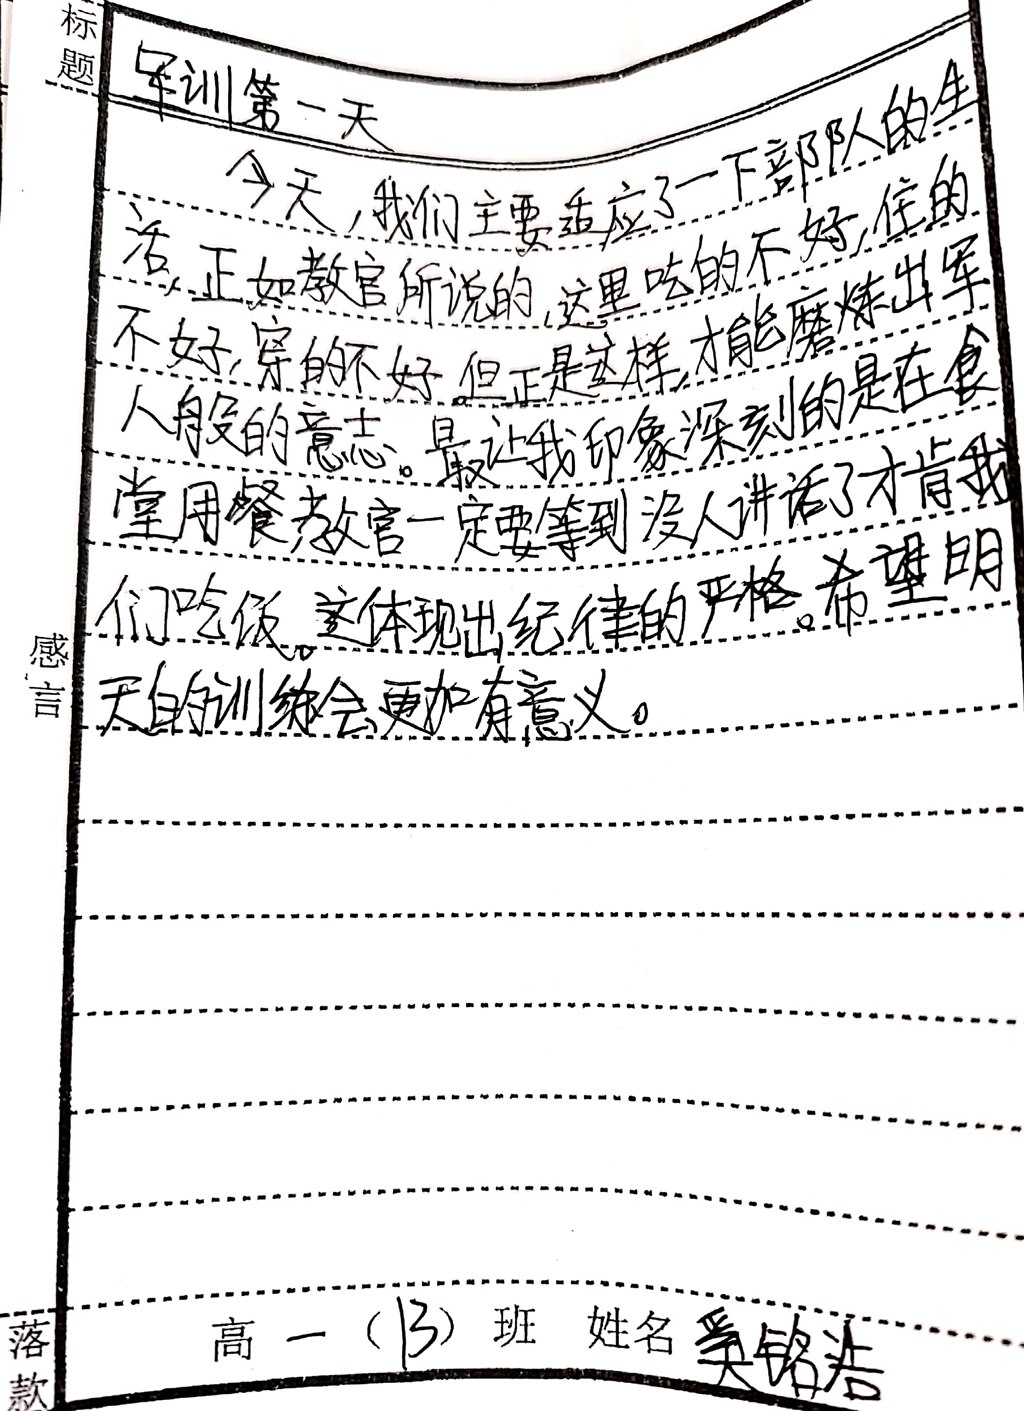 标题
军训第一天
今天,我们主要适应了一下部队人的生
活,正如教官所说的,这里吃的不好,住的
不好,穿的不好。但正是这样,才能磨炼出军
人般的意志。最让我印象深刻的是在食
堂用餐,教官一定要等到没人讲话了才肯我
们吃饭。这体现出纪律的严格。希望明
天的训练会更加有意义。
感言
落款
高一(13)班 姓名 奚铭浩